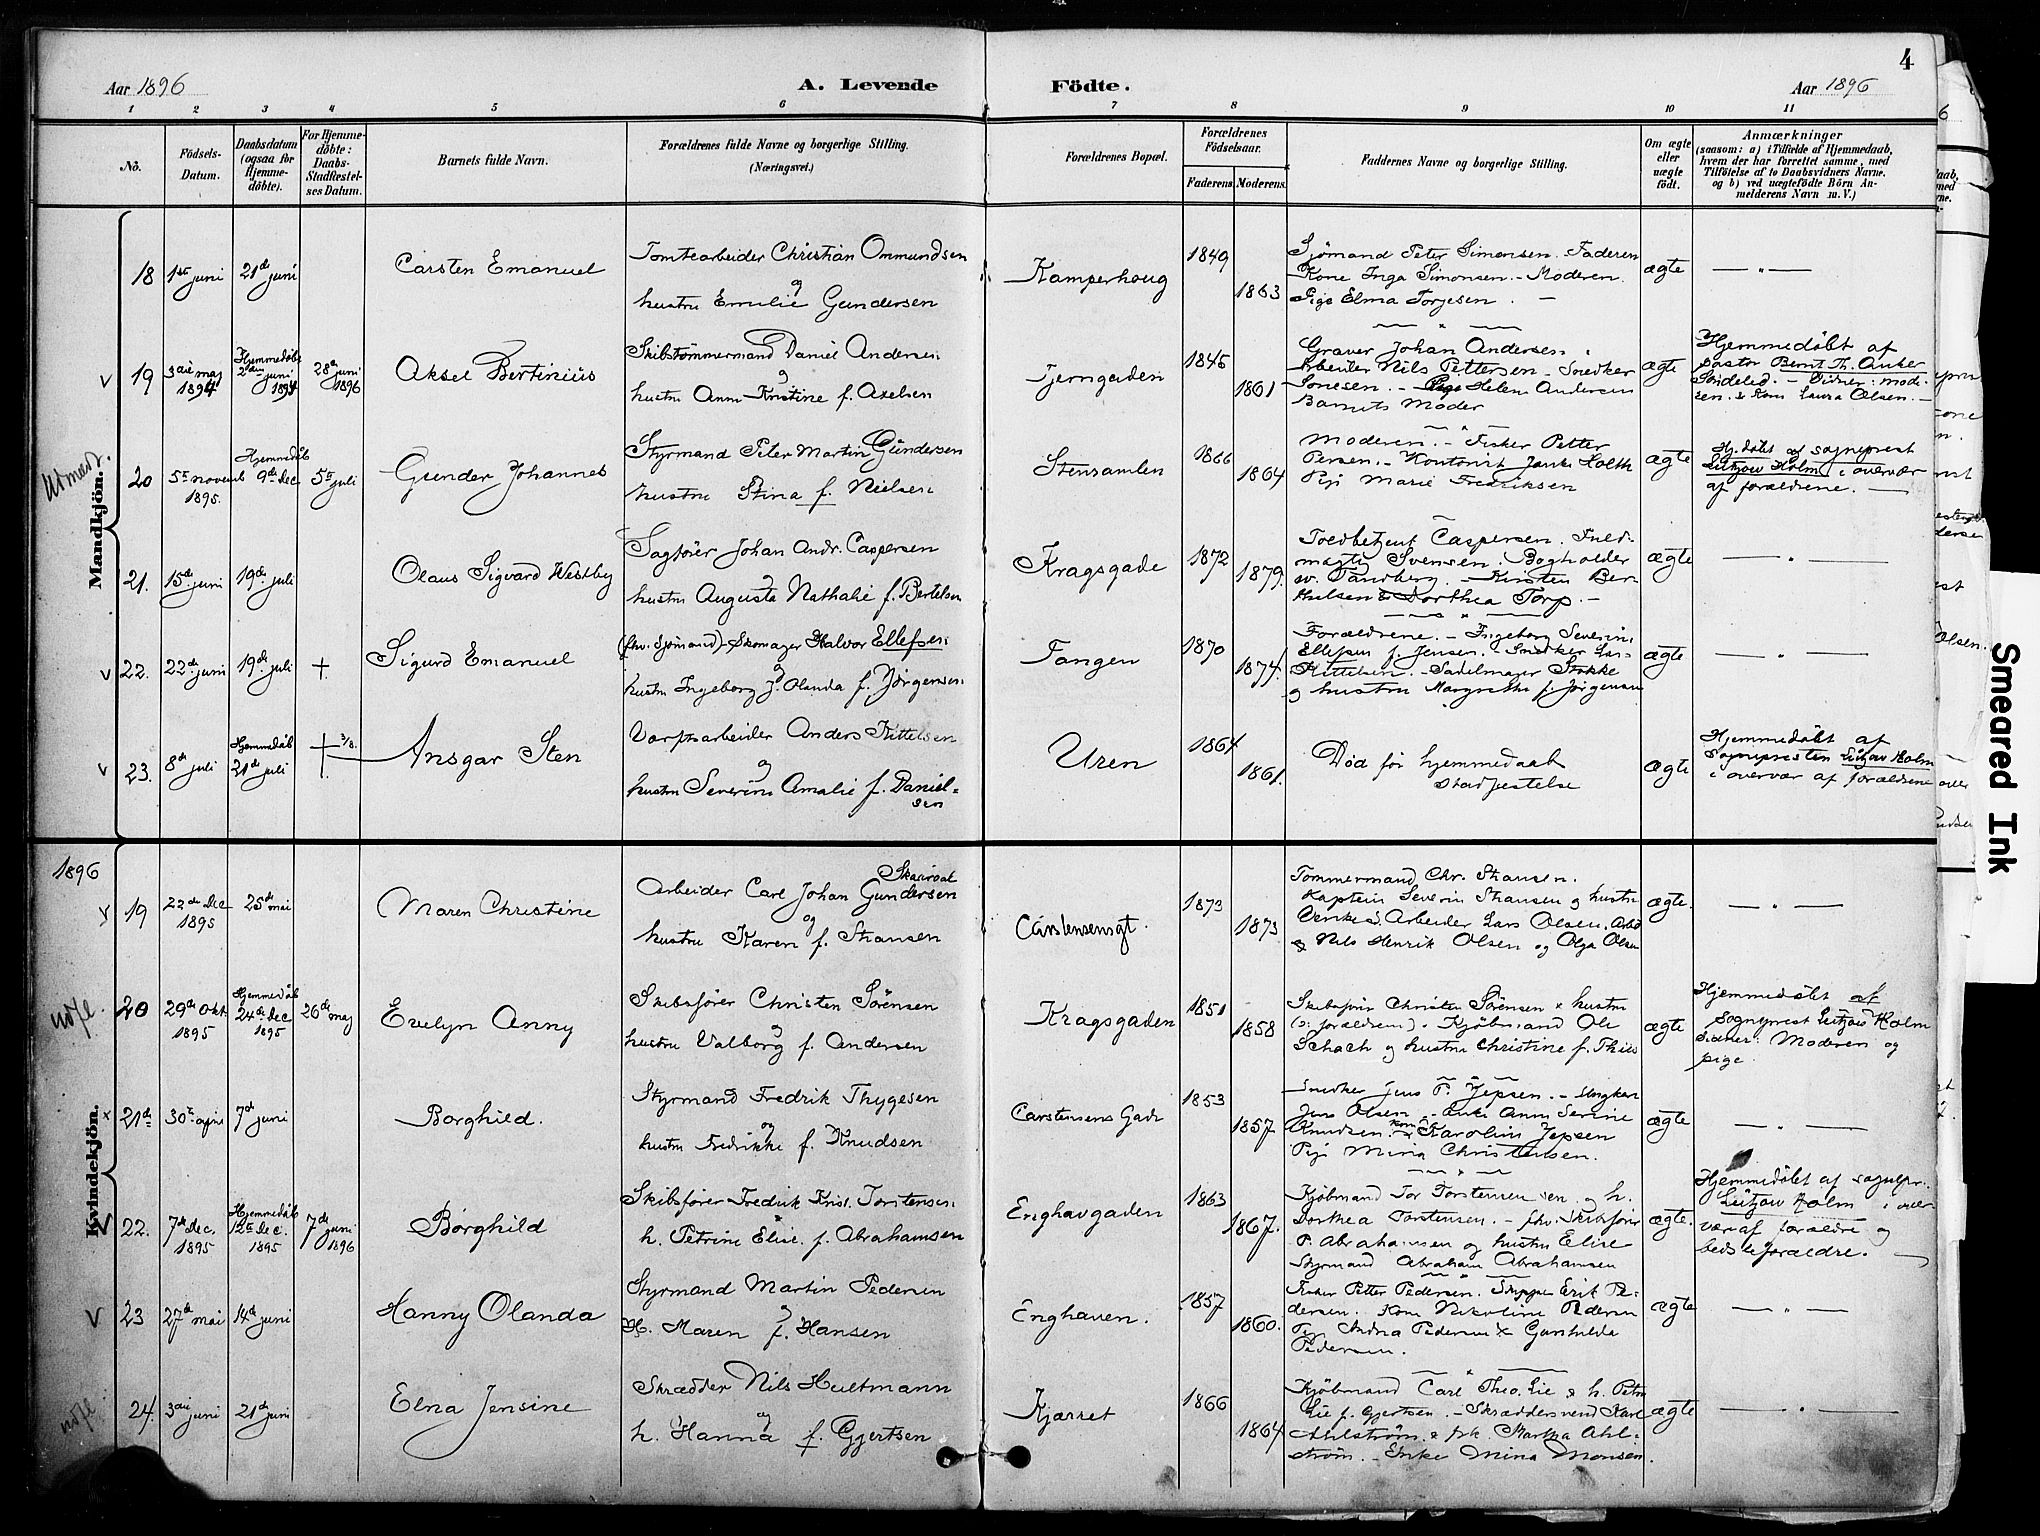 4
Aar 1896 A. Levende Födte. Aar 1896
1 2 3 4 5 6 7 8 9 10 11
No.
Födsels-
Datum.
Daabsdatum
(ogsaa for
Hjemme-
döbte).
For Hjemme-
döbte:
Daabs-
Stadfæstel-
ses Datum.
Barnets fulde Navn.
Forældrenes fulde Navne og borgerlige Stilling.
(Næringsvei.)
Forældrenes Bopæl.
Forældrenes
Födselsaar.
Faderens Moderens
Faddernes Navne og borgerlige Stilling.
Om ægte
eller
uægte
födt.
Anmærkninger
(saasom: a) i Tilfælde af Hjemmedaab,
hvem der har forrettet samme, med
Tilföielse af to Daabsvidners Navne.
og b) ved uægtefödte Börn An-
melderens Navn m. V.)
Mandkjön.
18 1ste juni 21de juni
Carsten Emanuel
Tomtearbeider Christian Ommundsen
og
hustru Emilie Gundersen
Kamperhoug
1849
1863
Sjømand Peter Simonsen. Faderen
Kone Inga Simonsen. - Moderen.
Pige Elma Torjesen.
ægte
v 19 3die maj
1894
Hjemmedøbt
2den juni
1894
28de juni
1896
Aksel Bertinius
Skibstømmermand Daniel Andersen
og
hustru Ann Kristine f. Axelsen
Tjerngaden
1845
1861
Graver Johan Andersen.
Arbeider Nils Pettersen - Snedker
- Pige Helene Andersen
Barnets Moder
ægte
Hjemmedøbt af
pastor Bernt Th. Anker
Søndeled. -
sen. & Kone Laura Olsen. -
20 5te novemb
1895.
Hjemmedøb
9de dec
5te juli
Gunder Johannes
Styrmand Peter Martin Gundersen
og
hustru Stina f. Nielsen
Stensamlen
1866
1864
Moderen. - Fisker Petter
Persen. - Kontorist Holth
Pige Marie Fredriksen
ægte
Hj.døbt af sogneprest
Lützow Holm i overvær
af forældrene.
21. 15de juni 19de juli
Olaus Sigvard Westby
Sagfører Johan Andr. Caspersen
og
hustru Augusta Nathalie f. Bertelsen
Kragsgade
1872
1879.
Toldbetjent Caspersen. Fuld-
mægtig Svensen. Bogholder
Tandberg. - Kirsten Ber-
thelsen & Dorthea Torp. -
ægte
v 22. 22de juni 19de juli +
Sigurd Emanuel
(fhv. sjømand) Skomager Halvor Ellefsen
og
hustru Ingeborg J. Olanda f. Jörgensen
Tangen
1870
1874.
Forældrene. - Ingeborg Severin.
Ellefsen f. Jensen. Snedker Lars
Kittelsen. - Sadelmager Stokke
og hustru Margrethe f. Jørgensen
ægte
v 23. 8de juli
Hjemmedøb
21de juli
+ 3/8.
Ansgar Sten
Værftsarbeider Anders Kittelsen
og
hustru Severine Amalie f. Daniel-
sen
Uren
1864
1861.
Død før hjemmedaab
stadfestelse
ægte
Hjemmedøbt af
Sognepresten Lützow Holm
i overvær af forældrene
1896
Kvindekjön.
v 19 22de Dec
1895
25de mai
Maren Christine
Skaarvat
Arbeider Carl Johan Gundersen
og
hustru Karen f. Stausen
Carstensensgt.
1873
1873
Tømmermand Chr. Stausen.
Kaptein Severin Stausen og hustru
Arbeider Lars Olsen.
& Nils Henrik Olsen og Olga Olsen
ægte.
20 29de Okt
1895
Hjemmedøb
24de Dec
1895
26de maj
Evelyn Anny
Skibsfører Christen Sørensen
og
hustru Valborg f. Andersen
Kragsgaden
1851
1858
Skibsfører Christen Sørensen & hustru
(o: forældrene). Kjøbmand Ole
Schach og hustru Christine f. Thiis
ægte
Hjemmedøbt af
Sogneprest Lützow Holm
Vidner: Moderen og
pige
x 21de 30te april 7de juni
Borghild.
Styrmand Fredrik Thygesen
og
hustru Fredrikke f. Knudsen
Carstensens Gade
1853
1857.
Snedker Jens P. Jepsen. - Ungkar
Jens Olsen. - Enke Ann Serine
Knudsen. Kone Karoline Jepsen
Pige Mina Christensen.
ægte
v 22. 7de Dec.
1895
Hjemmedøb
12te Dec.
1895
7de juni
1896
Borghild
Skibsfører Fredrik Krist. Torstensen
h. Petrine Elise f. Abrahamsen
Enghavgaden
1863
1867.
Kjøbmand Tor Torstensen og h.
Dorthea Torstensen. - fhv. Skibsfører
P. Abrahamsen og hustru Elise
Styrmand Abraham Abrahamsen
ægte.
Hjemmedøbt af sognepr.
Lützow Holm i over
vær af forældre og
bedsteforældre.
v 23 27de mai 14de juni
Hanny Olanda
Styrmand Martin Pedersen
og
H. Maren f. Hansen
Enghaven.
1857
1860.
Fisker Petter Pedersen. Skipper Erik Pe-
dersen. Kone Nikoline Pedersen
Pige Andrea Pedersen & Gunhilda
Pedersen.
ægte
24. 3die juni 21de juni
Elna Jensine
Skrædder Nils Hultmann
og
h. Hanna f. Gjertsen
Kjærret
1866
1864
Kjøbmand Carl Theo. Lie & h. Petra
Lie f. Gjertsen. - Skræddersvend Karl
Ahlstrøm. & frk. Martha Ahl-
strøm. - Enke Mina Monsen.
ægte
Smeared Ink